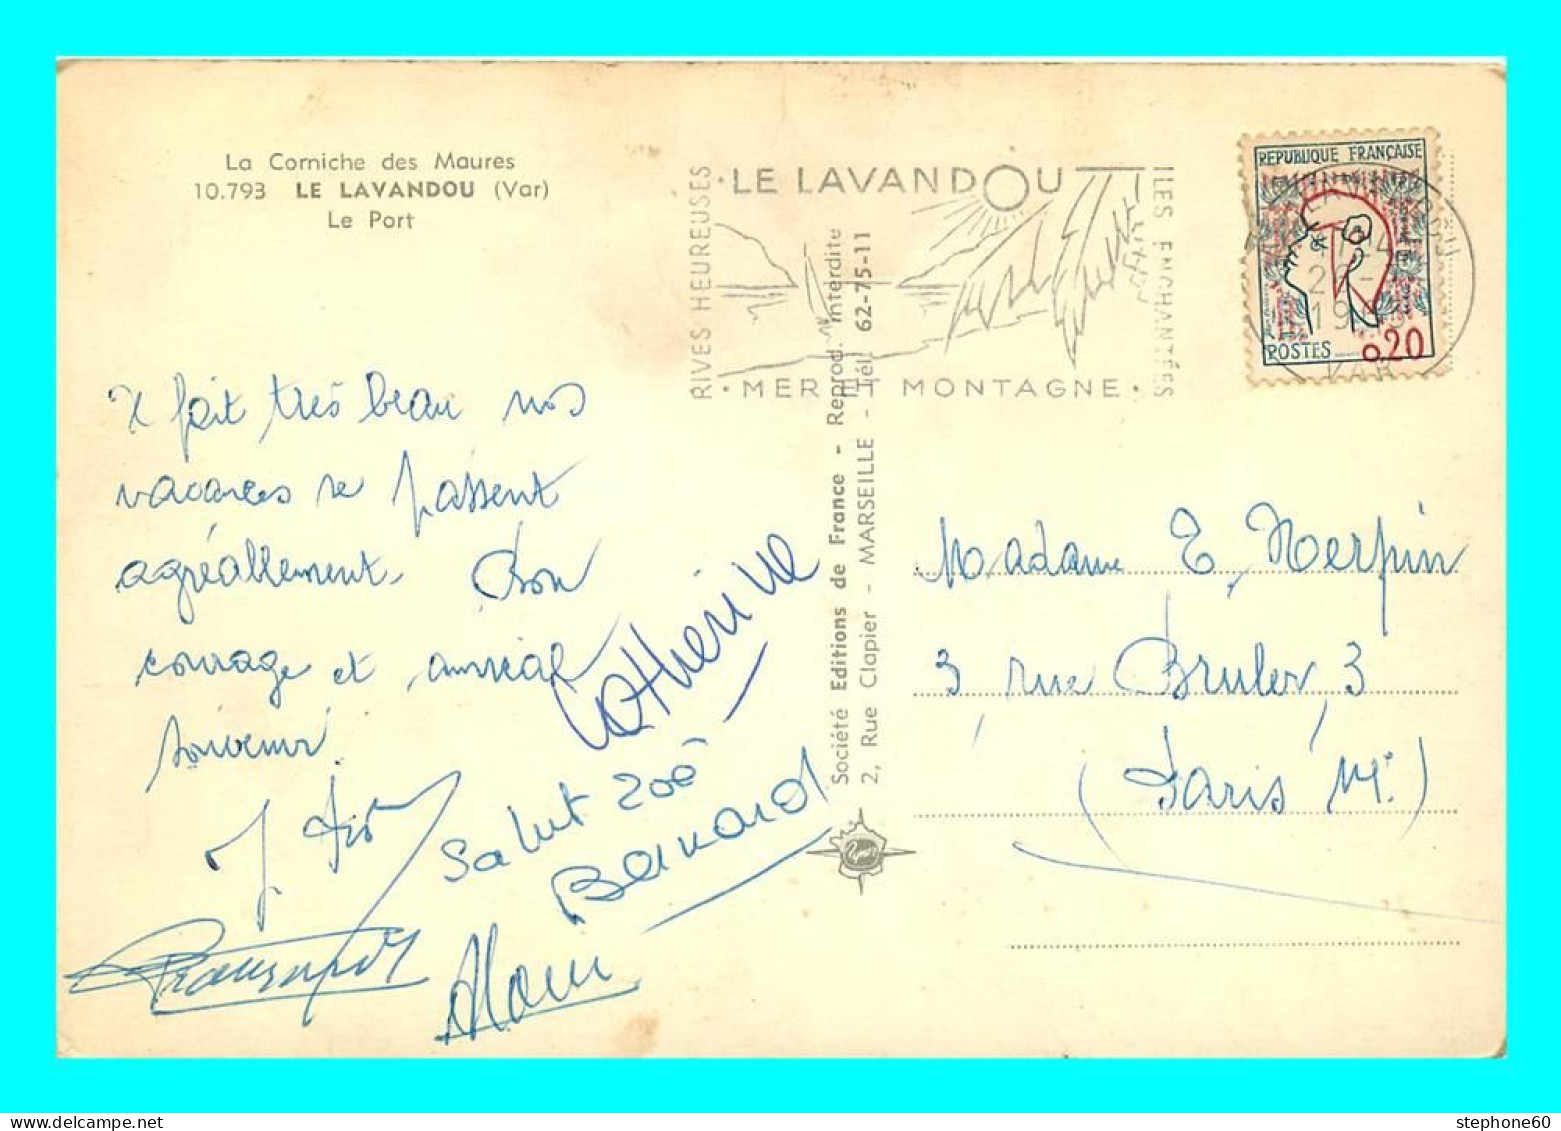 La Corniche des Maures
10.793 LE LAVANDOU (Var)
Le Port
RIVES HEUREUSES
· LE LAVANDOU
ILES ENCHANTÉES
· MER ET MONTAGNE ·
REPUBLIQUE FRANÇAISE
POSTES 0.20
VAR
Il fait très beau nos
vacances se passent
agréablement. Bon
courage et amical
souvenir
Catherine
Salut Zoë
Bernard
Alain
Société Editions de France - Reprod. Interdite
2, Rue Clapier - MARSEILLE - Tél. 62-75-11
Madame
3 rue 3
(Paris
stephone60